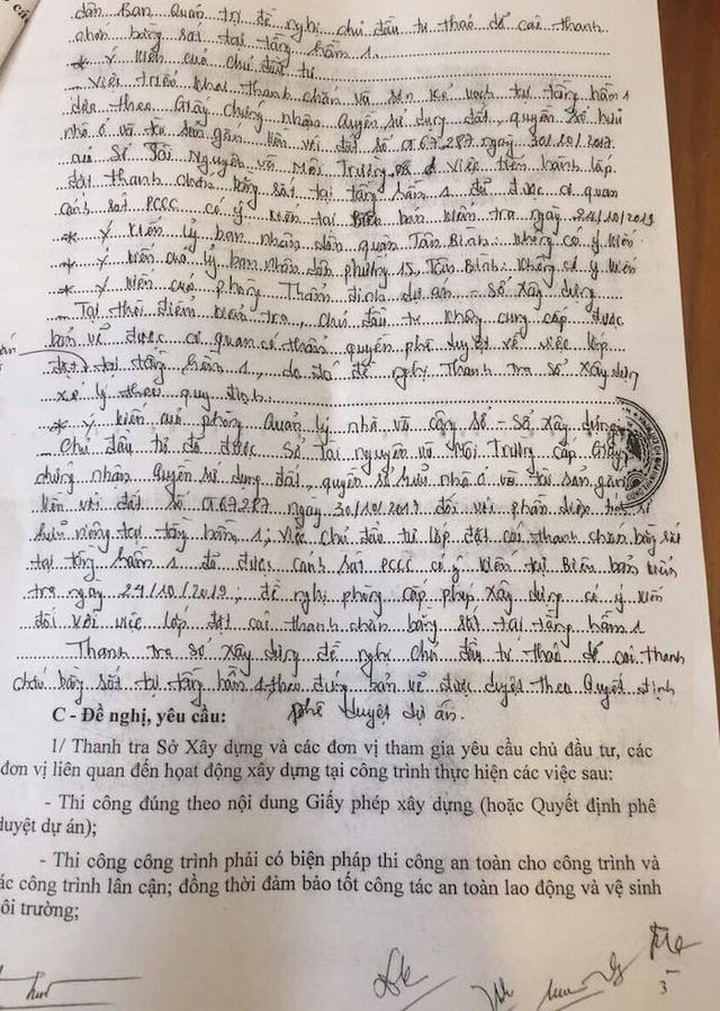 dân Ban Quản trị đề nghị chủ đầu tư tháo dỡ các thanh
chắn bằng sắt tại tầng hầm 1.
* Ý kiến của chủ đầu tư
- Việc triển khai thanh chắn và sơn kẻ vạch tại tầng hầm 1
dựa theo Giấy chứng nhận quyền sử dụng đất, quyền sở hữu
nhà ở và tài sản gắn liền với đất số 67287 ngày 30/10/2017
của Sở Tài Nguyên và Môi Trường Việc tiến hành lắp
đặt thanh chắn bằng sắt tại tầng hầm 1 đã được cơ quan
cảnh sát PCCC có ý kiến tại Biên bản kiểm tra ngày 24/10/2019
* Ý kiến Ủy ban nhân dân quận Tân Bình: Không có ý kiến
* Ý kiến của Ủy ban nhân dân phường 15, Tân Bình: Không có ý kiến
* Ý kiến của phòng Thẩm định dự án - Sở Xây dựng
- Tại thời điểm kiểm tra, chủ đầu tư không cung cấp được
bản vẽ được cơ quan có thẩm quyền phê duyệt về việc lắp
đặt tại tầng hầm 1, do đó đề nghị Thanh tra Sở Xây dựng
xử lý theo quy định.
* Ý kiến của phòng Quản lý nhà và công sở - Sở Xây dựng
- Chủ đầu tư đã được Sở Tài nguyên và Môi Trường cấp Giấy
chứng nhận quyền sử dụng đất, quyền sở hữu nhà ở và tài sản gắn
liền với đất số 67287 ngày 30/10/2017 đối với phần diện tích sở
hữu riêng tại tầng hầm 1; việc chủ đầu tư lắp đặt các thanh chắn bằng sắt
tại tầng hầm 1 đã được cảnh sát PCCC có ý kiến tại Biên bản kiểm
tra ngày 24/10/2019, đề nghị phòng cấp phép xây dựng có ý kiến
đối với việc lắp đặt các thanh chắn bằng sắt tại tầng hầm 1
Thanh tra Sở Xây dựng đề nghị chủ đầu tư tháo dỡ các thanh
chắn bằng sắt tại tầng hầm 1, theo đúng bản vẽ được duyệt theo Quyết định
C - Đề nghị, yêu cầu: phê duyệt dự án.
1/ Thanh tra Sở Xây dựng và các đơn vị tham gia yêu cầu chủ đầu tư, các
đơn vị liên quan đến hoạt động xây dựng tại công trình thực hiện các việc sau:
- Thi công đúng theo nội dung Giấy phép xây dựng (hoặc Quyết định phê
duyệt dự án);
- Thi công công trình phải có biện pháp thi công an toàn cho công trình và
ác công trình lân cận; đồng thời đảm bảo tốt công tác an toàn lao động và vệ sinh
ôi trường;
3